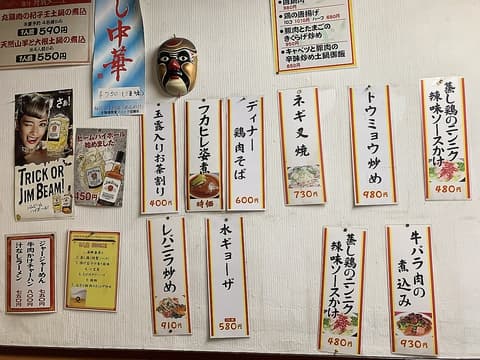 丸鶏肉の杓子王土鍋の煮込
1人前 590円
天然山芋と大根土鍋の煮込
1人前 550円
し中華
鶏の唐揚げ
豚肉とたまごの
きくらげ炒め
キャベツと豚肉の
辛味炒め土鍋御飯
850円
TRICK OR
JIM BEAM!
ビームハイボール
始めました
450円
玉露入りお茶割り
400円
フカヒレ姿煮
時価
ディナー
鶏肉そば
600円
ネギ叉焼
730円
トウミョウ炒め
980円
蒸し鶏のニンニク
辣味ソースかけ
480円
ジャージャーめん
牛肉かけチャーハン
汁なしラーメン
レバニラ炒め
910円
水ギョーザ
580円
蒸し鶏のニンニク
辣味ソースかけ
480円
牛バラ肉の
煮込み
930円